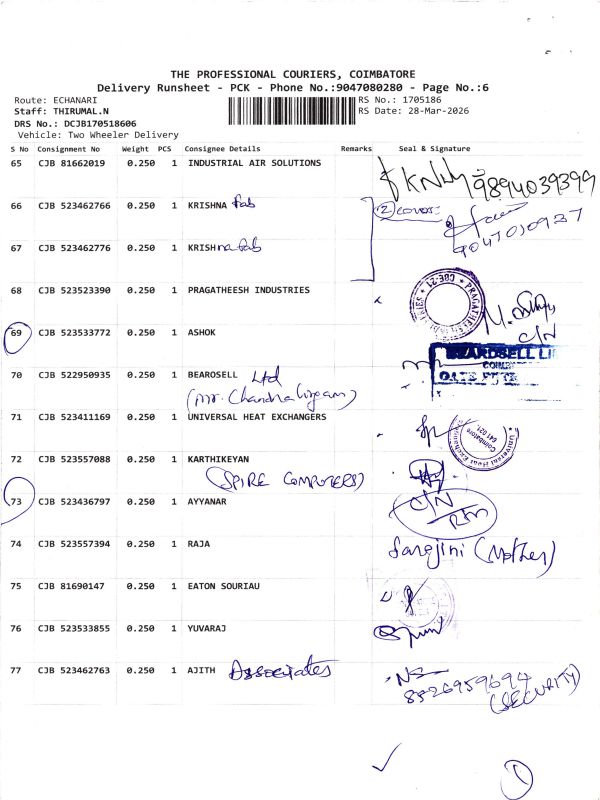 THE PROFESSIONAL COURIERS, COIMBATORE
Delivery Runsheet - PCK - Phone No.:9047080280 - Page No.:6
Route: ECHANARI
RS No.: 1705186
Staff: THIRUMAL.N
RS Date: 28-Mar-2026
DRS No.: DCJB170518606
Vehicle: Two Wheeler Delivery
S No Consignment No Weight PCS Consignee Details Remarks Seal & Signature
65 CJB 81662019 0.250 1 INDUSTRIAL AIR SOLUTIONS 9894039399
66 CJB 523462766 0.250 1 KRISHNA fab (2) cover
9047010937
67 CJB 523462776 0.250 1 KRISHna fab
68 CJB 523523390 0.250 1 PRAGATHEESH INDUSTRIES
69 CJB 523533772 0.250 1 ASHOK C/N
BEARDSELL LI
70 CJB 522950935 0.250 1 BEAROSELL Ltd
GATE
71 CJB 523411169 0.250 1 UNIVERSAL HEAT EXCHANGERS
Universal Heat Exchangers Coimbatore 641 021
72 CJB 523557088 0.250 1 KARTHIKEYAN
(SPIRE COMPUTERS)
73 CJB 523436797 0.250 1 AYYANAR C/N
RTN
74 CJB 523557394 0.250 1 RAJA Sarojini (Mother)
75 CJB 81690147 0.250 1 EATON SOURIAU
76 CJB 523533855 0.250 1 YUVARAJ
77 CJB 523462763 0.250 1 AJITH Associates
(SECURITY)
1